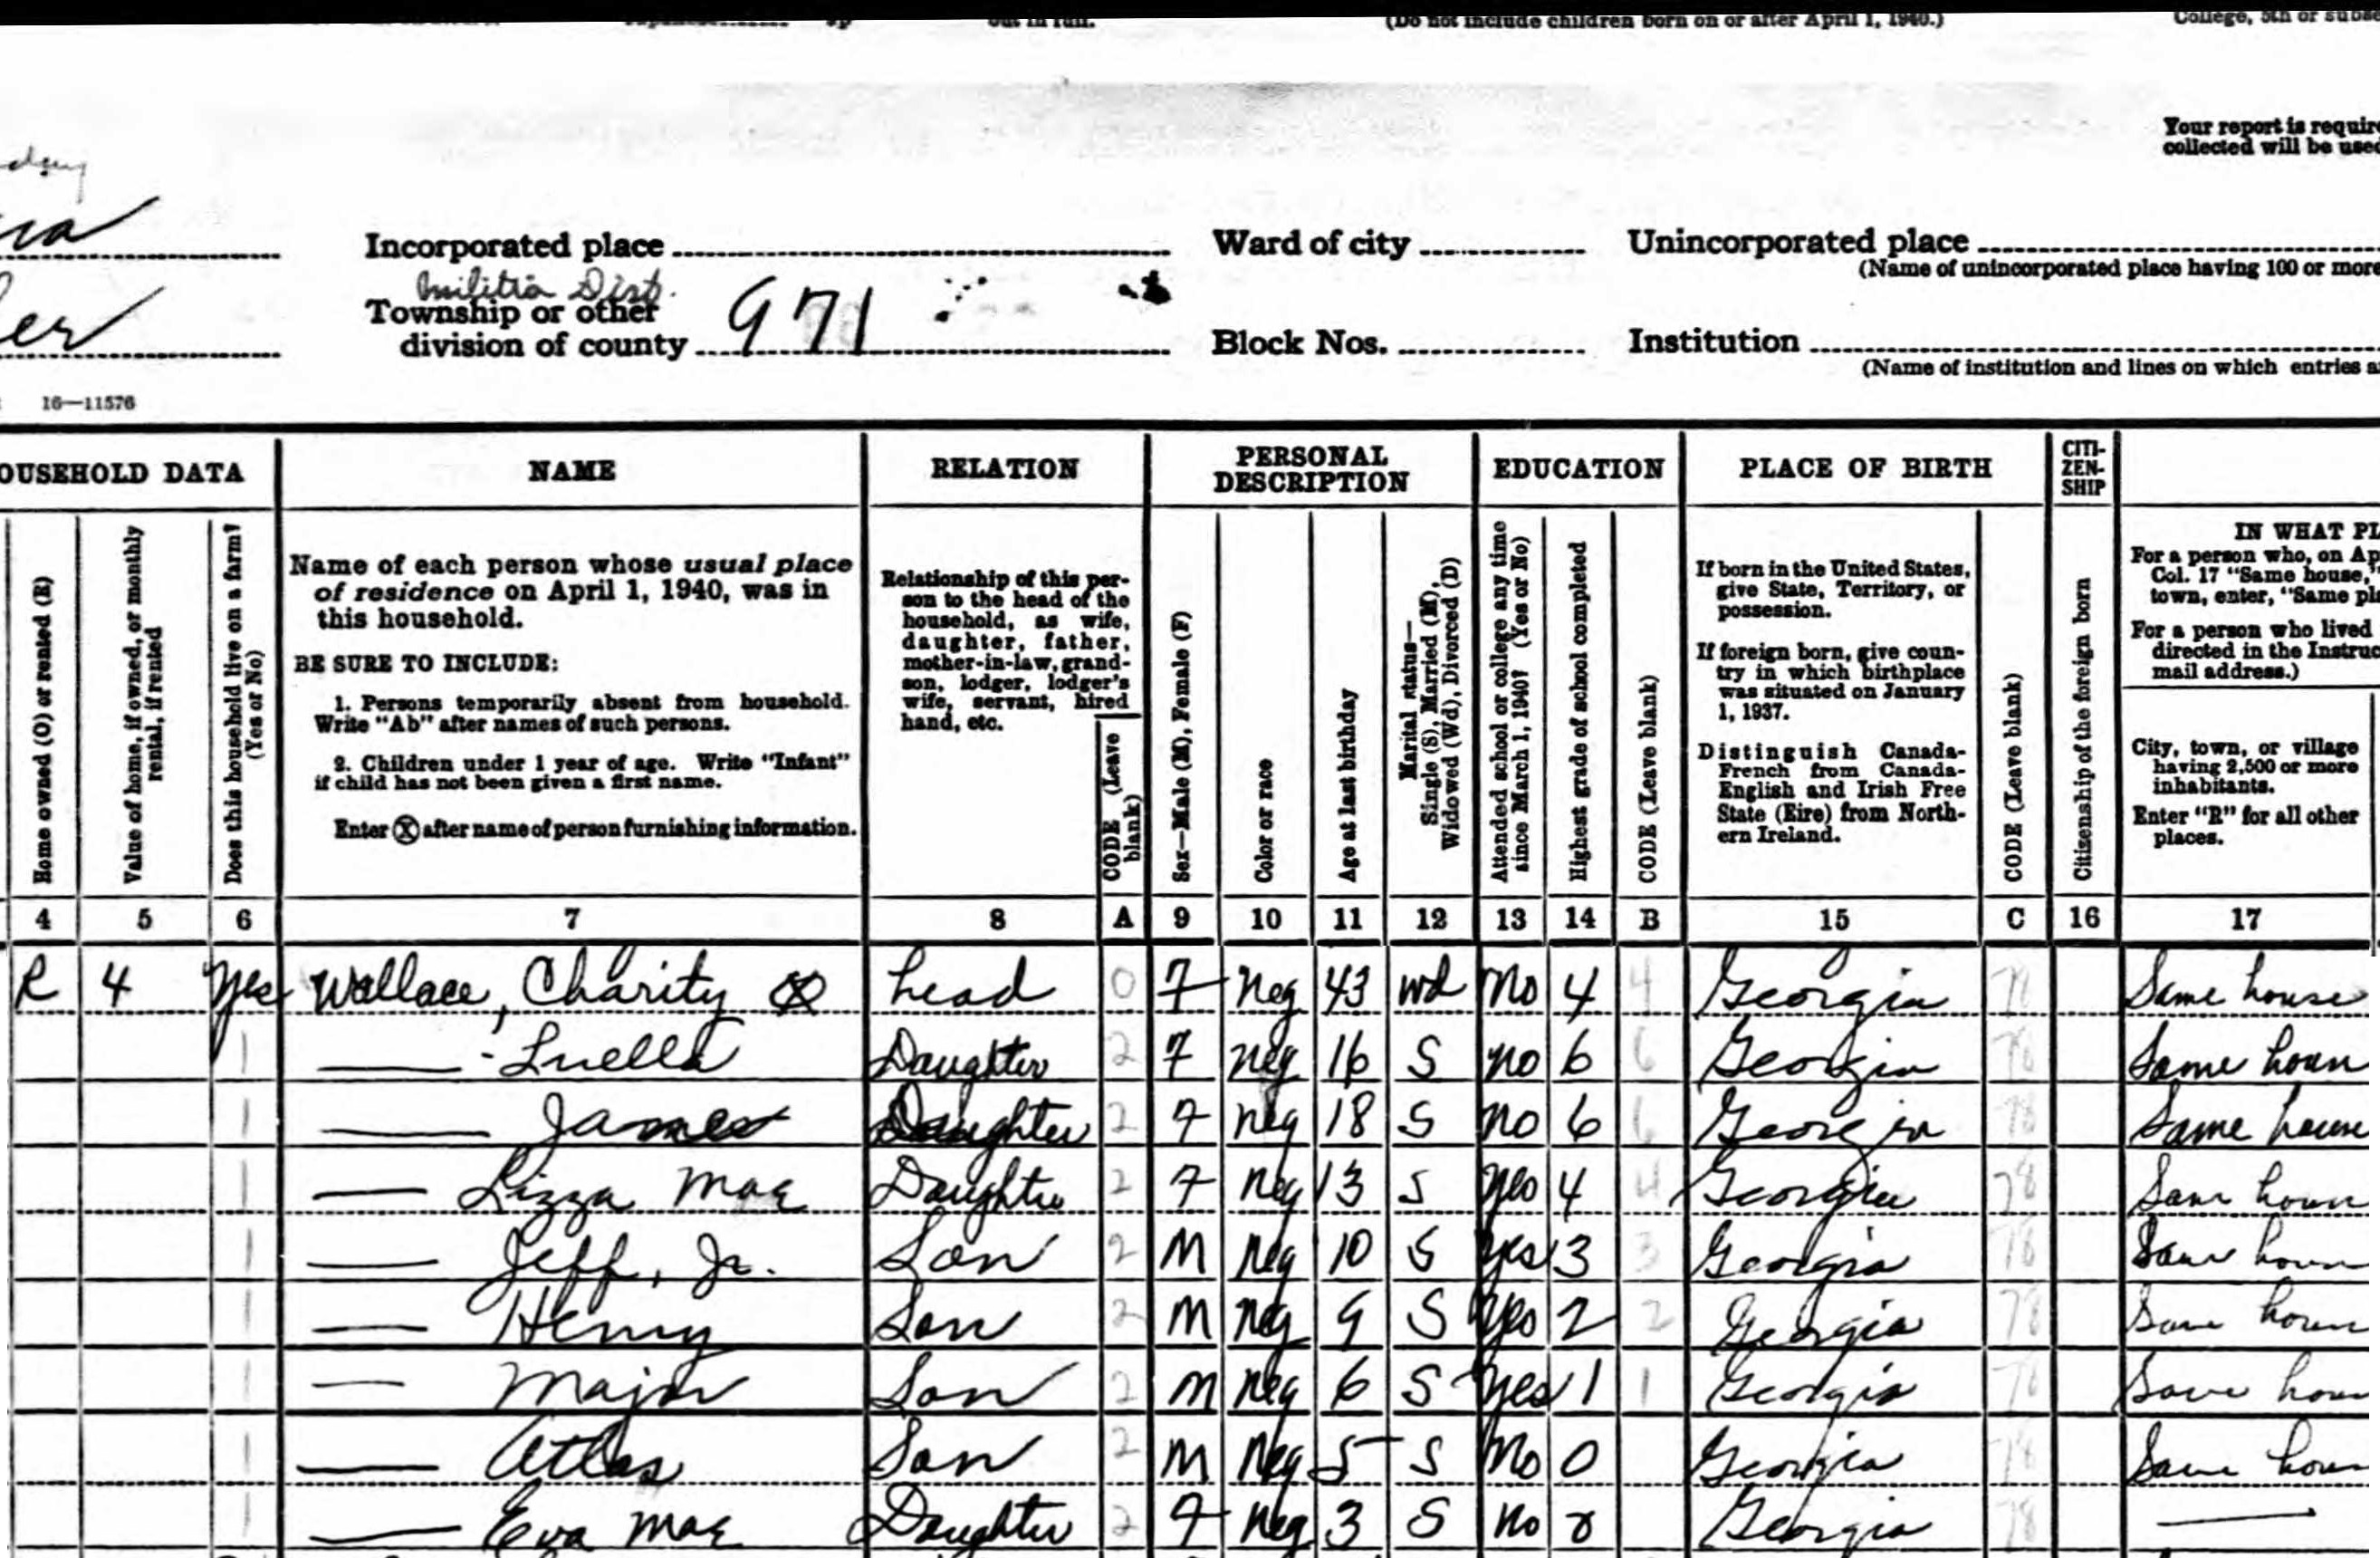 out in full.
(Do not include children born on or after April 1, 1940.)
College, 5th or subse
Your report is requir
collected will be used
Incorporated place
Ward of city
Unincorporated place
(Name of unincorporated place having 100 or more
Militia Dist.
Township or other
division of county 971
Block Nos.
Institution
(Name of institution and lines on which entries a
16—11576
OUSEHOLD DATA
NAME
RELATION
PERSONAL DESCRIPTION
EDUCATION
PLACE OF BIRTH
CITI-ZEN-SHIP
Home owned (O) or rented (R)
Value of home, if owned, or monthly rental, if rented
Does this household live on a farm? (Yes or No)
Name of each person whose usual place
of residence on April 1, 1940, was in
this household.
BE SURE TO INCLUDE:
1. Persons temporarily absent from household.
Write "Ab" after names of such persons.
2. Children under 1 year of age. Write "Infant"
if child has not been given a first name.
Enter Ⓧ after name of person furnishing information.
Relationship of this per-
son to the head of the
household, as wife,
daughter, father,
mother-in-law, grand-
son, lodger, lodger's
wife, servant, hired
hand, etc.
CODE (Leave blank)
Sex—Male (M), Female (F)
Color or race
Age at last birthday
Marital status—
Single (S), Married (M),
Widowed (Wd), Divorced (D)
Attended school or college any time
since March 1, 1940? (Yes or No)
Highest grade of school completed
CODE (Leave blank)
If born in the United States,
give State, Territory, or
possession.
If foreign born, give coun-
try in which birthplace
was situated on January
1, 1937.
Distinguish Canada-
French from Canada-
English and Irish Free
State (Eire) from North-
ern Ireland.
CODE (Leave blank)
Citizenship of the foreign born
IN WHAT PL
For a person who, on Ap
Col. 17 "Same house,"
town, enter, "Same pla
For a person who lived
directed in the Instruc
mail address.)
City, town, or village
having 2,500 or more
inhabitants.
Enter "R" for all other
places.
4 5 6 7 8 A 9 10 11 12 13 14 B 15 C 16 17
R 4 Yes Wallace, Charity Ⓧ head 0 F Neg 43 Wd No 4 4 Georgia 78 Same house
1 — Luella Daughter 2 F neg 16 S no 6 6 Georgia 78 Same house
1 — James Daughter 2 F neg 18 S no 6 6 Georgia 78 Same house
1 — Lizza Mae Daughter 2 F neg 13 S Yes 4 4 Georgia 78 Same house
1 — Jeff, Jr. Son 2 M neg 10 S Yes 3 3 Georgia 78 Same house
1 — Henry Son 2 M neg 9 S Yes 2 2 Georgia 78 Same house
1 — Major Son 2 M neg 6 S Yes 1 1 Georgia 78 Same house
1 — Atlas Son 2 M Neg 5 S No 0 Georgia 78 Same house
1 — Eva Mae Daughter 2 F Neg 3 S No 0 Georgia 78 —